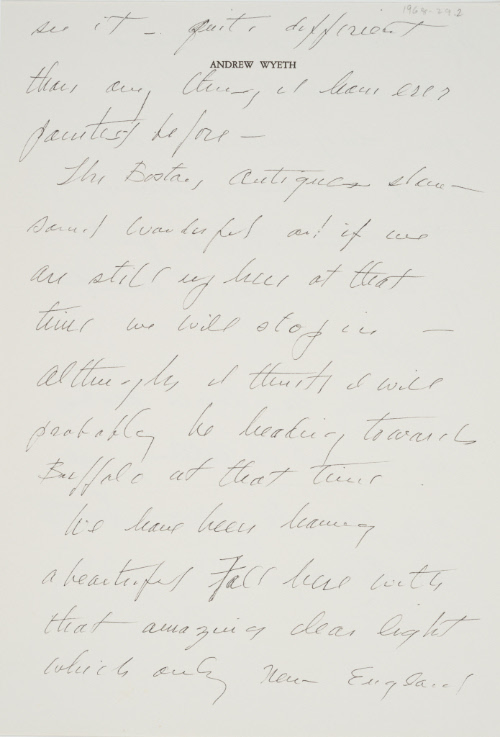 see it — quite different
ANDREW WYETH
than any thing I have ever
painted before —
The Boston, antiques show —
sounds wonderful and if we
are still up here at that
time we will stop in —
although I think I will
probably be heading towards
Buffalo at that time.
We have been having
a beautiful Fall here with
that amazing clear light
which only New England